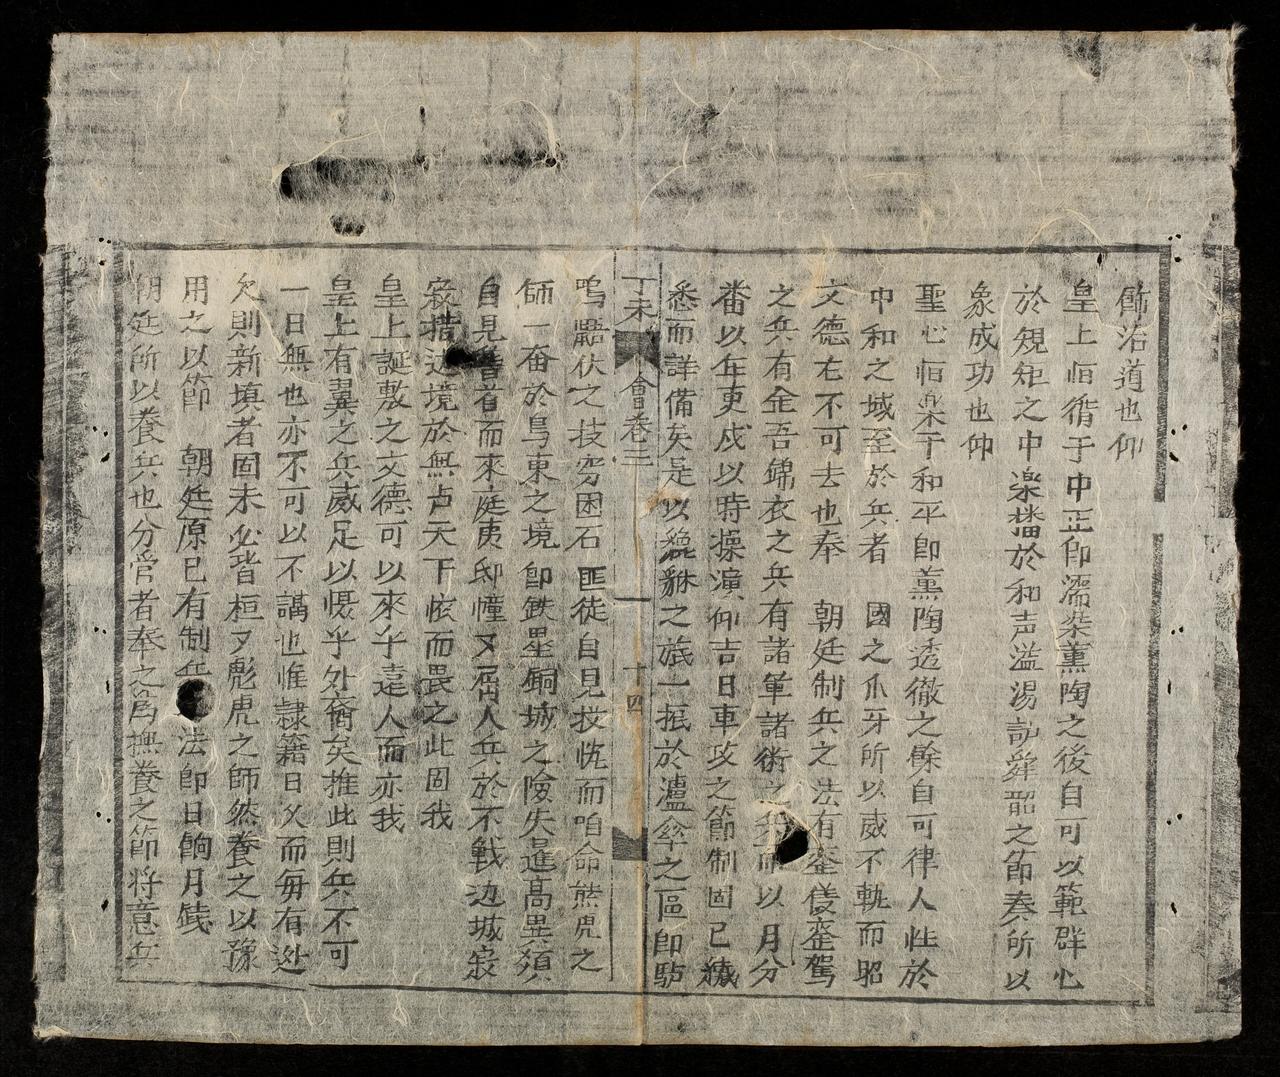 飾治道也仰
皇上恒循于中正即濡染薰陶之後自可以範群心
於規矩之中楽播於和声溢湯訬舜韶之節奏所以
象成功也仰
聖心恒楽于和平即薰陶透徹之餘自可律人性於
中和之域至於兵者 國之爪牙所以威不軌而昭
文德右不可去也奉 朝廷制兵之法有鑾儀鑾駕
之兵有金吾錦衣之兵有諸軍諸衛之兵而以月分
番以年更戍以時操演仰吉日車攻之節制固已
悉而詳備矣是以貔貅之旅一振於瀘傘之區即
鳴鼯伏之技穷困石匪徒自見投忱而咱命熊虎之
師一奮於鳥東之境即鉄壘銅城之險失進高異須
自見稽首而來庭夷邸幢又屬人兵於不戰边城寂
寂猎边境於無虞天下依而畏之此固我
皇上誕敷之文德可以來乎遠人而亦我
皇上有翼之兵威足以慑乎外裔矣推此則兵不可
一日無也亦不可以不講也惟隷籍日乆而每有迯
欠則新填者固未必皆桓夕彪虎之師然養之以豫
用之以節 朝廷原已有制兵 法即日餉月錢
朝廷所以養兵也分管者奉之為撫養之節将意兵
丁未 會卷三 十四